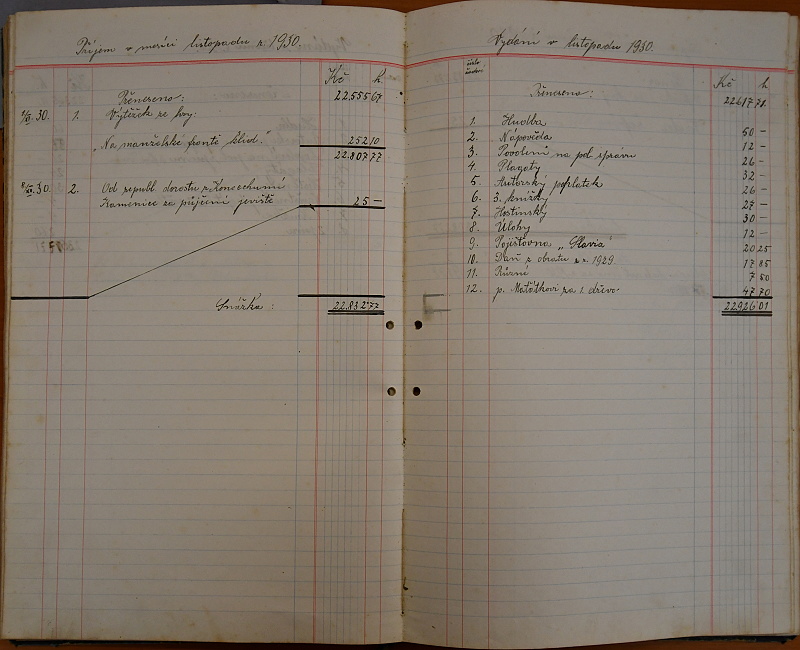 Příjem v měsíci listopadu r. 1930.
Kč h
Přeneseno: 22.555 67
/XI. 30. 1. Výtěžek ze hry:
„Na manželské frontě klid." 252 10
22.807 77
/XI. 30. 2. Od republ. dorostu z
Kamenice za půjčení jeviště 25 —
Snáška: 22.832 77
Vydání v listopadu 1930.
číslo
Kč h
Přeneseno: 22617 71
1. Hudba 50 —
2. Nápověda 12 —
3. Povolení na pol. správu 26 —
4. Plagáty 32 —
5. Autorský poplatek 26 —
6. 3. knížky 27 —
7. Hostinský 30 —
8. Úlohy 12 —
9. Pojišťovna „Slavia" 20 25
10. Daň z obratu z r. 1929 17 85
11. Různé 7 50
12. p. Matátkovi za dřevo 47 70
22926 01